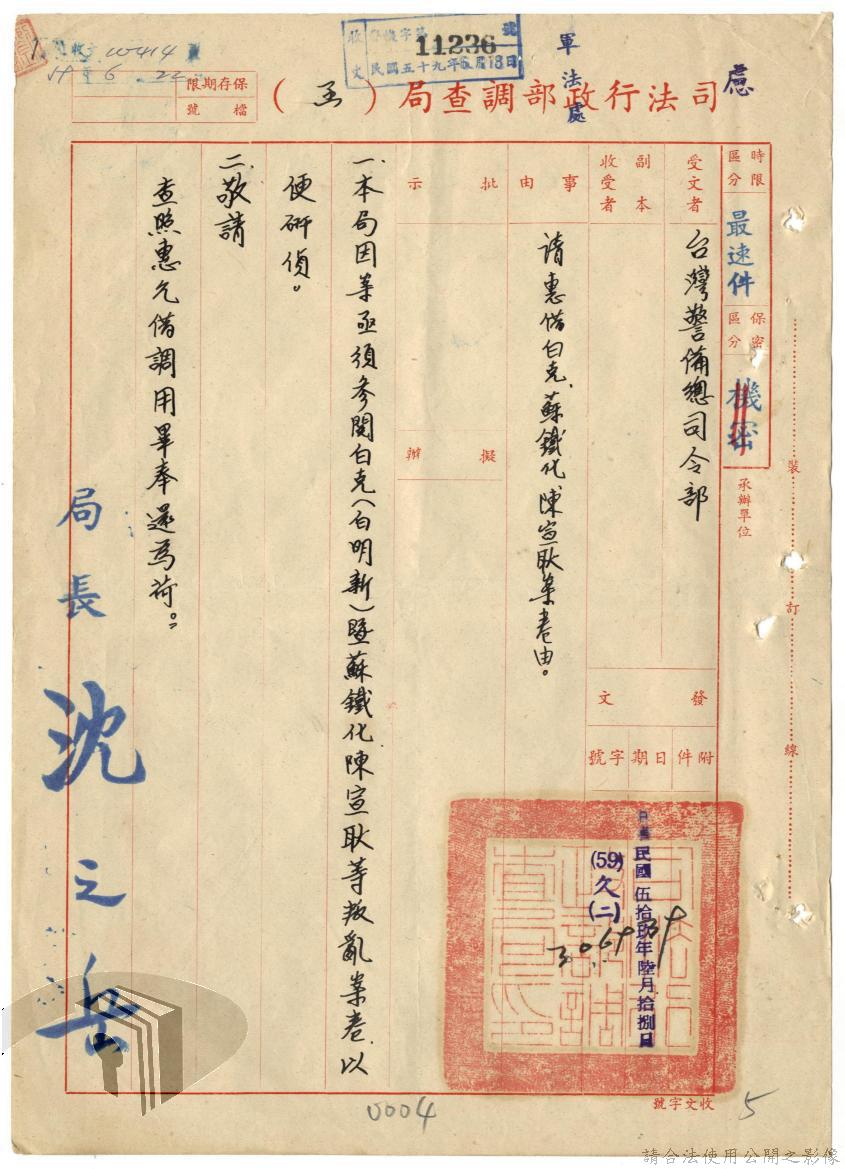 收文
警檢字第11236號
民國五十九年6月18日
軍法處
司法行政部調查局（函）
保存期限
檔號
時限區分
最速件
保密區分
機密
承辦單位
受文者
台灣警備總司令部
副本收受者
事由
請惠借白克、蘇鐵化、陳宣耿案卷由。
批示
擬辦
發文
附件
日期
字號
民國伍拾玖年陸月拾捌日
(59)欠(二)
一、本局因案亟須參閱白克（白明新）暨蘇鐵化、陳宣耿等叛亂案卷，以
便研偵。
二、敬請
查照惠允借調用畢奉還為荷。
局長沈之岳
裝
訂
線
收文字號
0004
5
請合法使用公開之影像